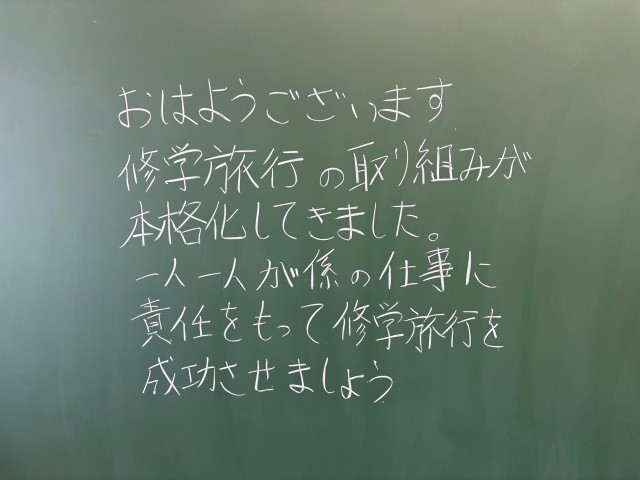 おはようございます
修学旅行の取り組みが
本格化してきました。
一人一人が係の仕事に
責任をもって修学旅行を
成功させましょう